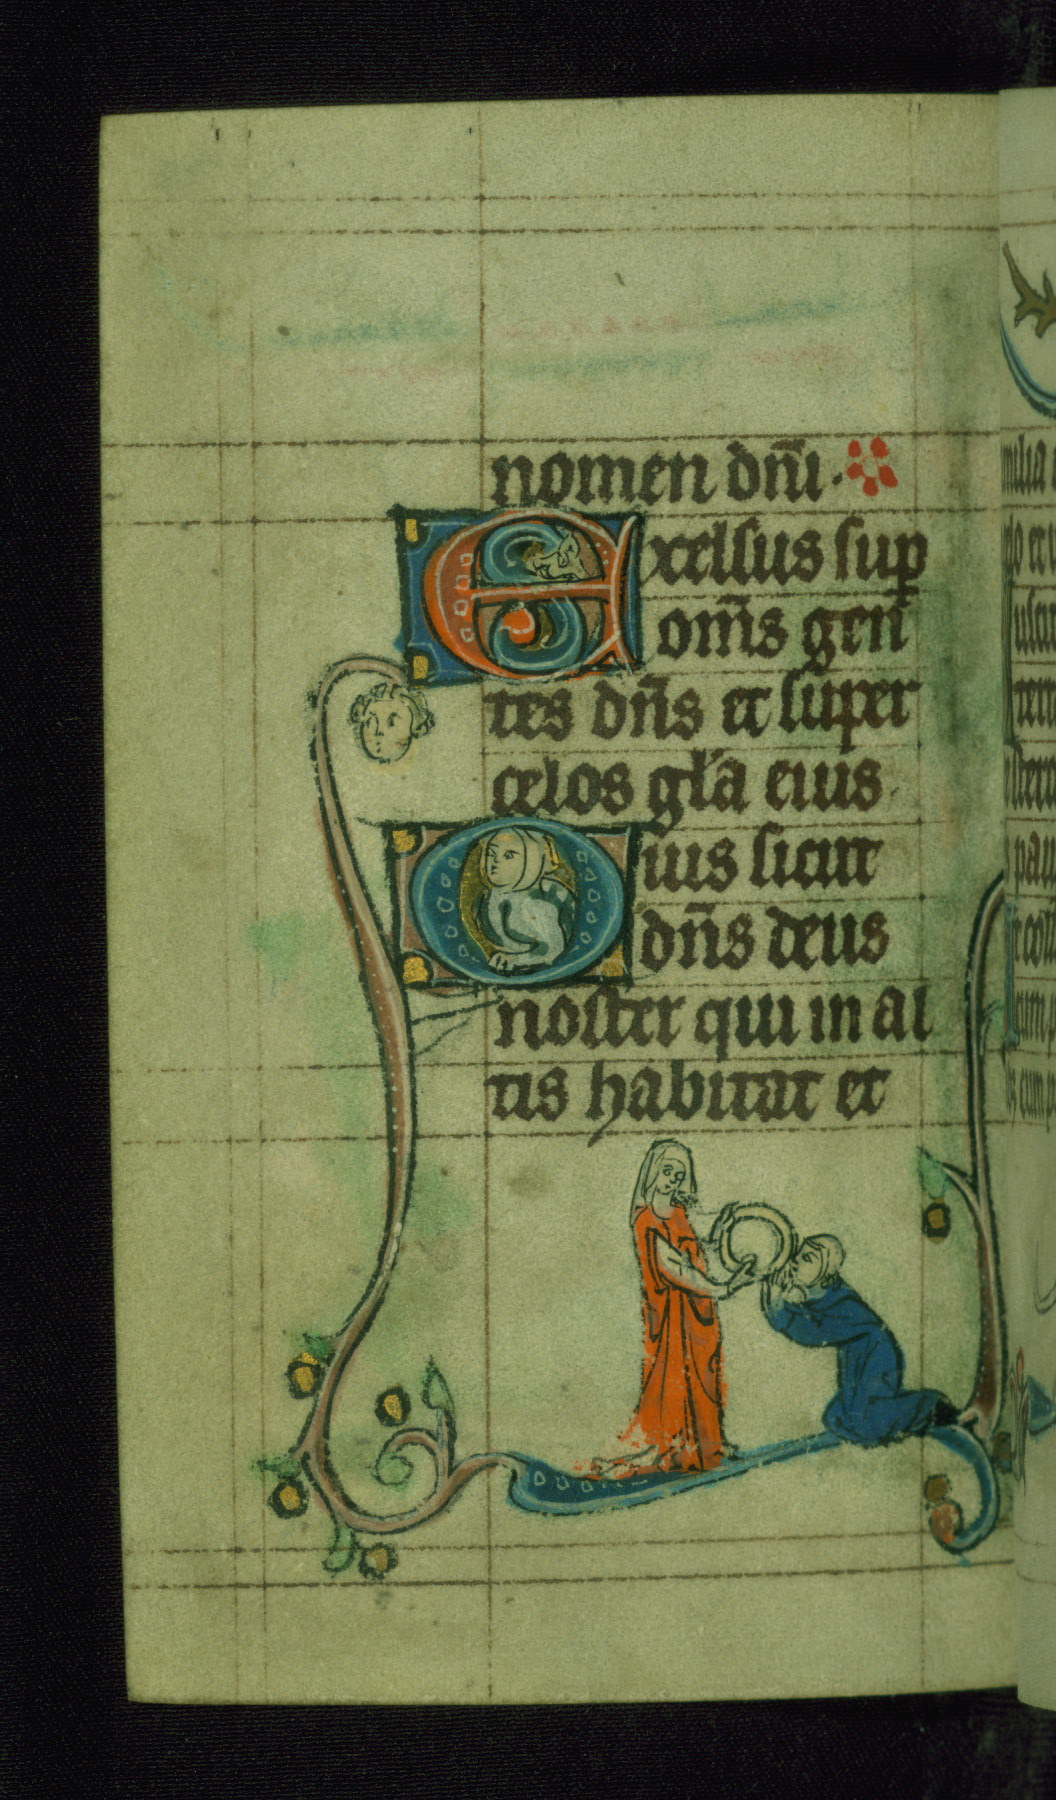 nomen dn̄i
Excelsus sup̲
om̄s gen
tes dn̄s et super
celos gl̄a eius
Quis sicut
dn̄s deus
noster qui in al
tis habitat et
milia
pau
cum p